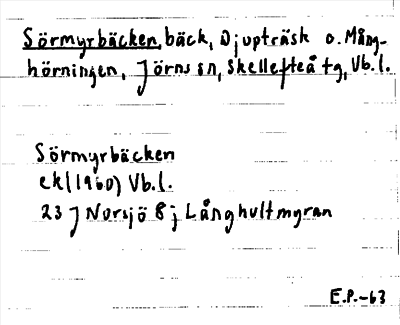 Sörmyrbäcken, bäck, Djupträsk o. Mång-
hörningen, Jörns sn, Skellefteå tg, Vb.l.
Sörmyrbäcken
ek(1960) Vb.l.
23 J Norsjö 8 j Långhultmyran
E.P.-63